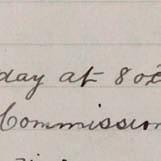 day at 8 o
Commission